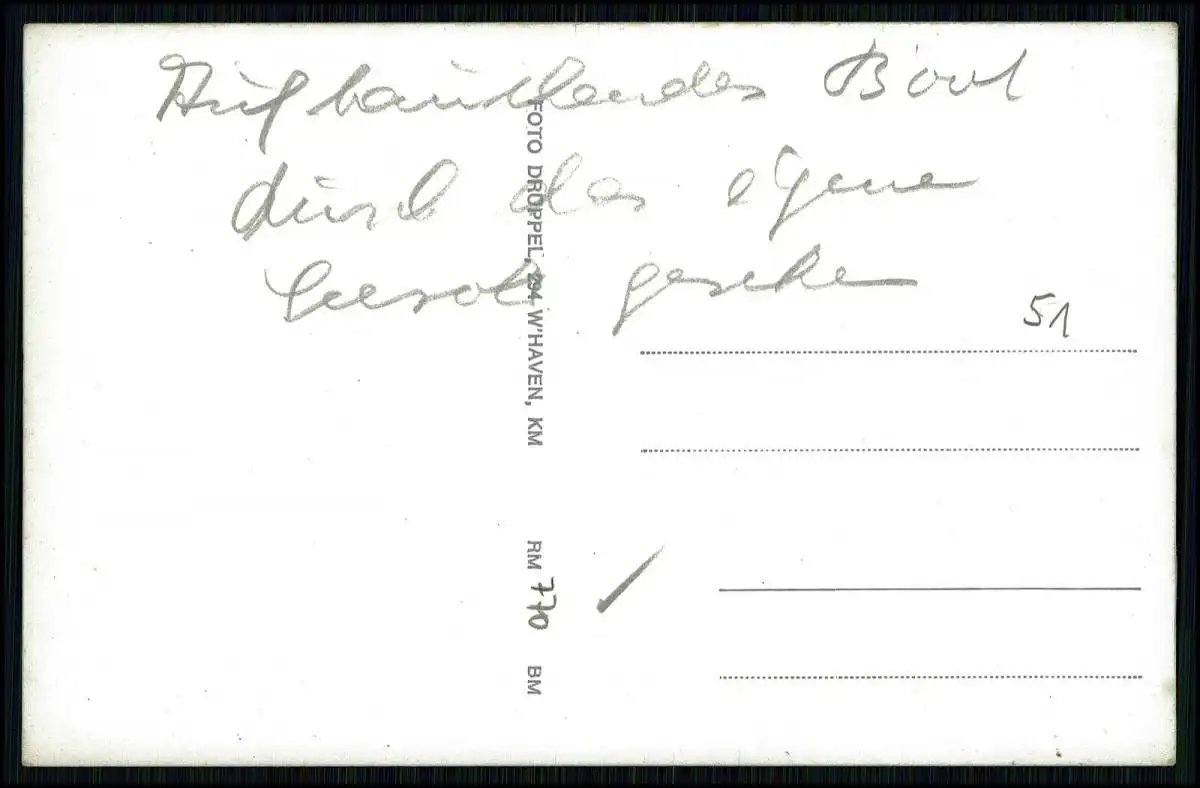 Auftauchendes Boot
durch das eigene
Sehrohr gesehen
51
FOTO DRÜPPEL, 294 W'HAVEN, KM
RM 770 BM